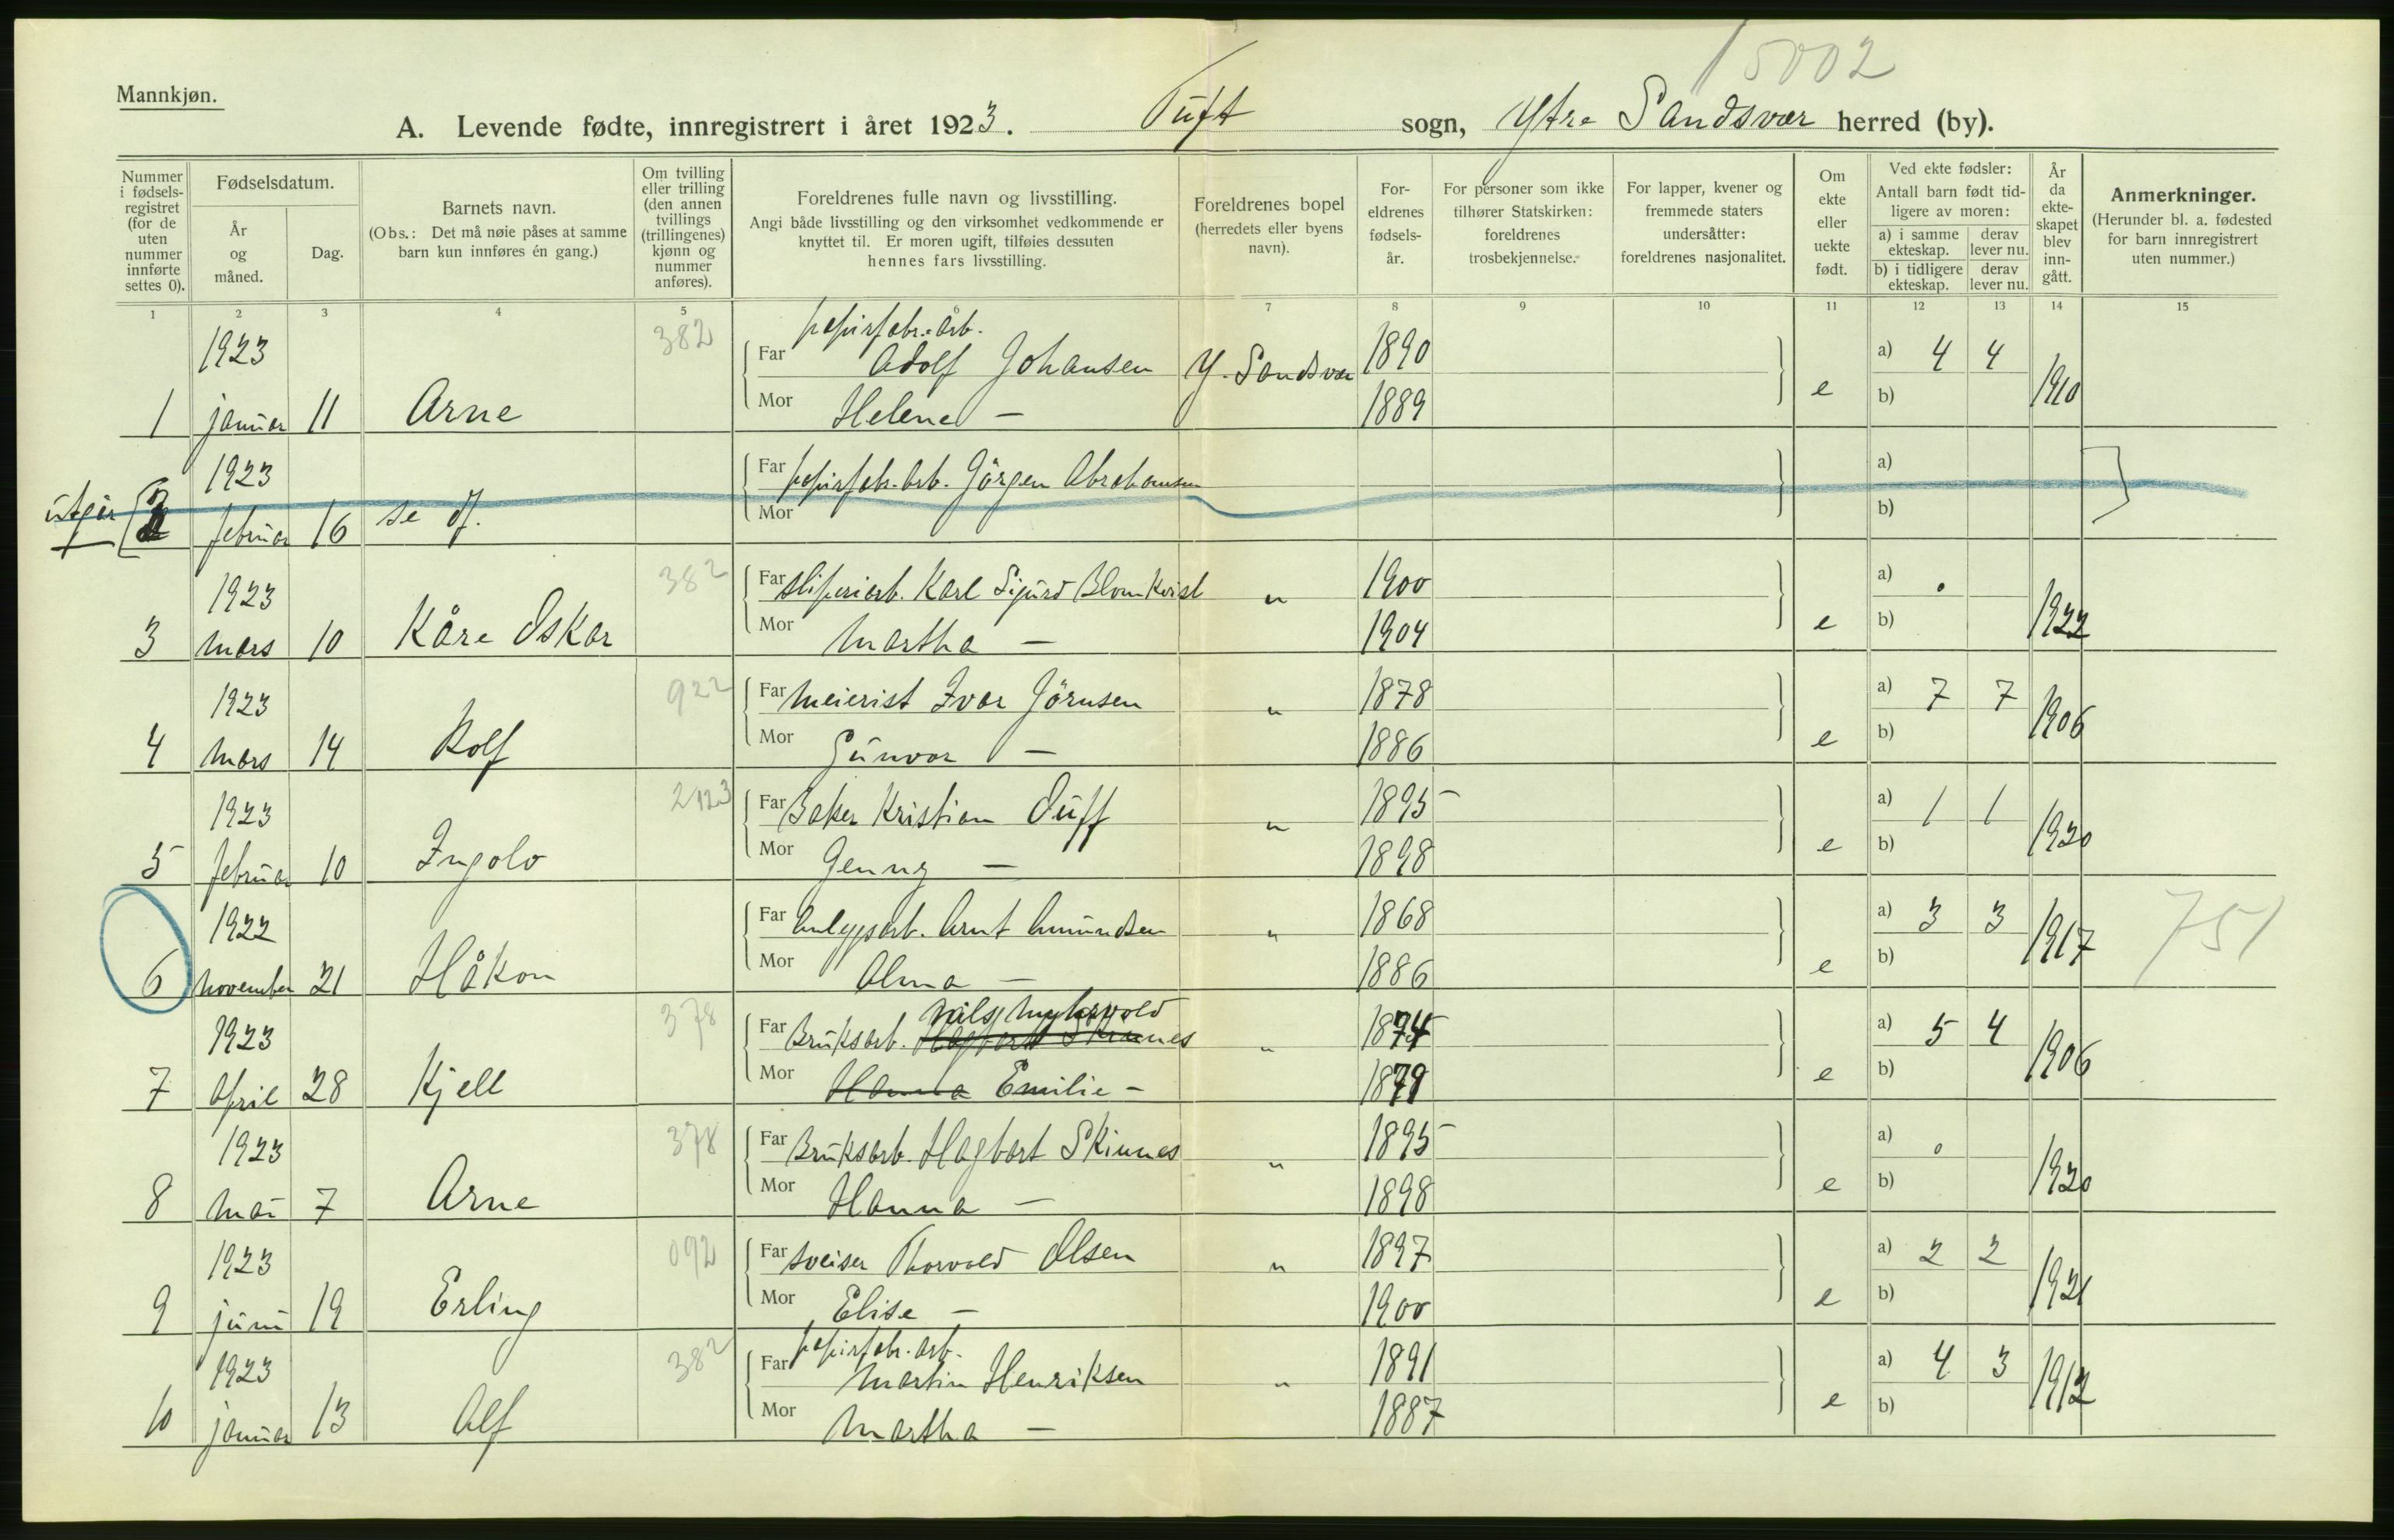 15002
Mannkjøn.
A. Levende fødte, innregistrert i året 1923. Tuft sogn, Ytre Sandsvær herred (by).
Nummer i fødsels-registret (for de uten nummer innførte settes 0).
Fødselsdatum.
År og måned.
Dag.
Barnets navn.
(Obs.: Det må nøie påses at samme barn kun innføres én gang.)
Om tvilling eller trilling (den annen tvillings (trillingenes) kjønn og nummer anføres).
Foreldrenes fulle navn og livsstilling.
Angi både livsstilling og den virksomhet vedkommende er knyttet til. Er moren ugift, tilføies dessuten hennes fars livsstilling.
Foreldrenes bopel (herredets eller byens navn).
For-eldrenes fødsels-år.
For personer som ikke tilhører Statskirken: foreldrenes trosbekjennelse.
For lapper, kvener og fremmede staters undersåtter: foreldrenes nasjonalitet.
Om ekte eller uekte født.
Ved ekte fødsler:
Antall barn født tid-ligere av moren:
a) i samme ekteskap. derav lever nu.
b) i tidligere ekteskap. derav lever nu.
År da ekte-skapet blev inn-gått.
Anmerkninger.
(Herunder bl. a. fødested for barn innregistrert uten nummer.)
1 2 3 4 5 6 7 8 9 10 11 12 13 14 15
1923 382 papirfabr.arb.
Far Adolf Johansen Y. Sandsvær 1890 a) 4 4
1 januar 11 Arne Mor Helene — 1889 e b) 1910
1923 Far papirfabr.arb. Jörgen Abrahamsen a)
utgår 2 februar 16 se df. Mor b)
1923 382 Far sliperiarb. Karl Sigurd Blomkvist " 1900 a) .
3 mars 10 Kåre Oskar Mor Martha — 1904 e b) 1922
1923 922 Far meierist Ivar Jörnsen " 1878 a) 7 7
4 mars 14 Rolf Mor Gunvor — 1886 e b) 1906
1923 2123 Far Baker Kristian Tuff " 1895 a) 1 1
5 februar 10 Ingolv Mor Jenny — 1898 e b) 1920
1922 Far Anleggsarb. Arnt Amundsen " 1868 a) 3 3 751
6 november 21 Håkon Mor Alma — 1886 e b) 1917
Nils Myhrvold
1923 378 Far Bruksarb. Hagbart Skinnes " 1874 a) 5 4
7 april 28 Kjell Mor Hanna Emilie — 1879 e b) 1906
1923 378 Far Bruksarb. Hagbart Skinnes " 1895 a) 0
8 mai 7 Arne Mor Hanna — 1898 e b) 1920
1923 092 Far sveiser Thorvald Olsen " 1897 a) 2 2
9 juni 19 Erling Mor Elise — 1900 e b) 1921
1923 382 papirfabr.arb.
Far Martin Henriksen " 1891 a) 4 3
10 januar 13 Alf Mor Martha — 1887 e b) 1912